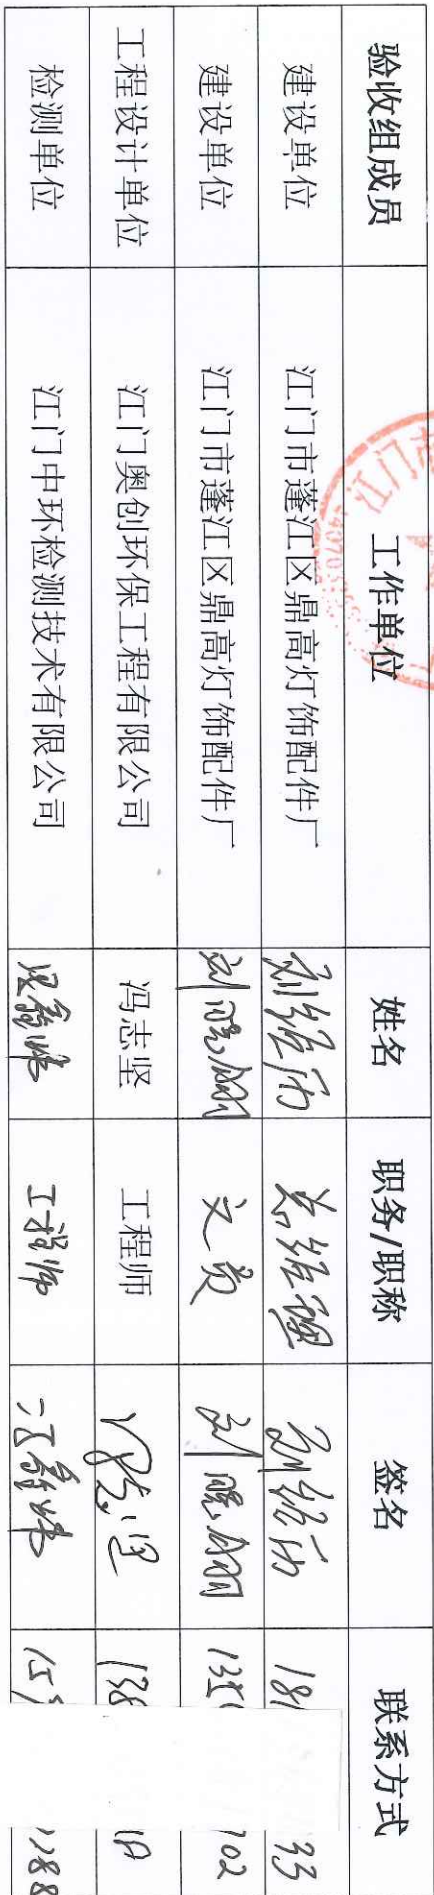 验收组成员 工作单位 姓名 职务/职称 签名 联系方式
建设单位 江门市蓬江区鼎高灯饰配件厂 总经理 181 33
建设单位 江门市蓬江区鼎高灯饰配件厂 文员 135 702
工程设计单位 江门奥创环保工程有限公司 冯志坚 工程师 冯志坚 138
检测单位 江门中环检测技术有限公司 工程师 188